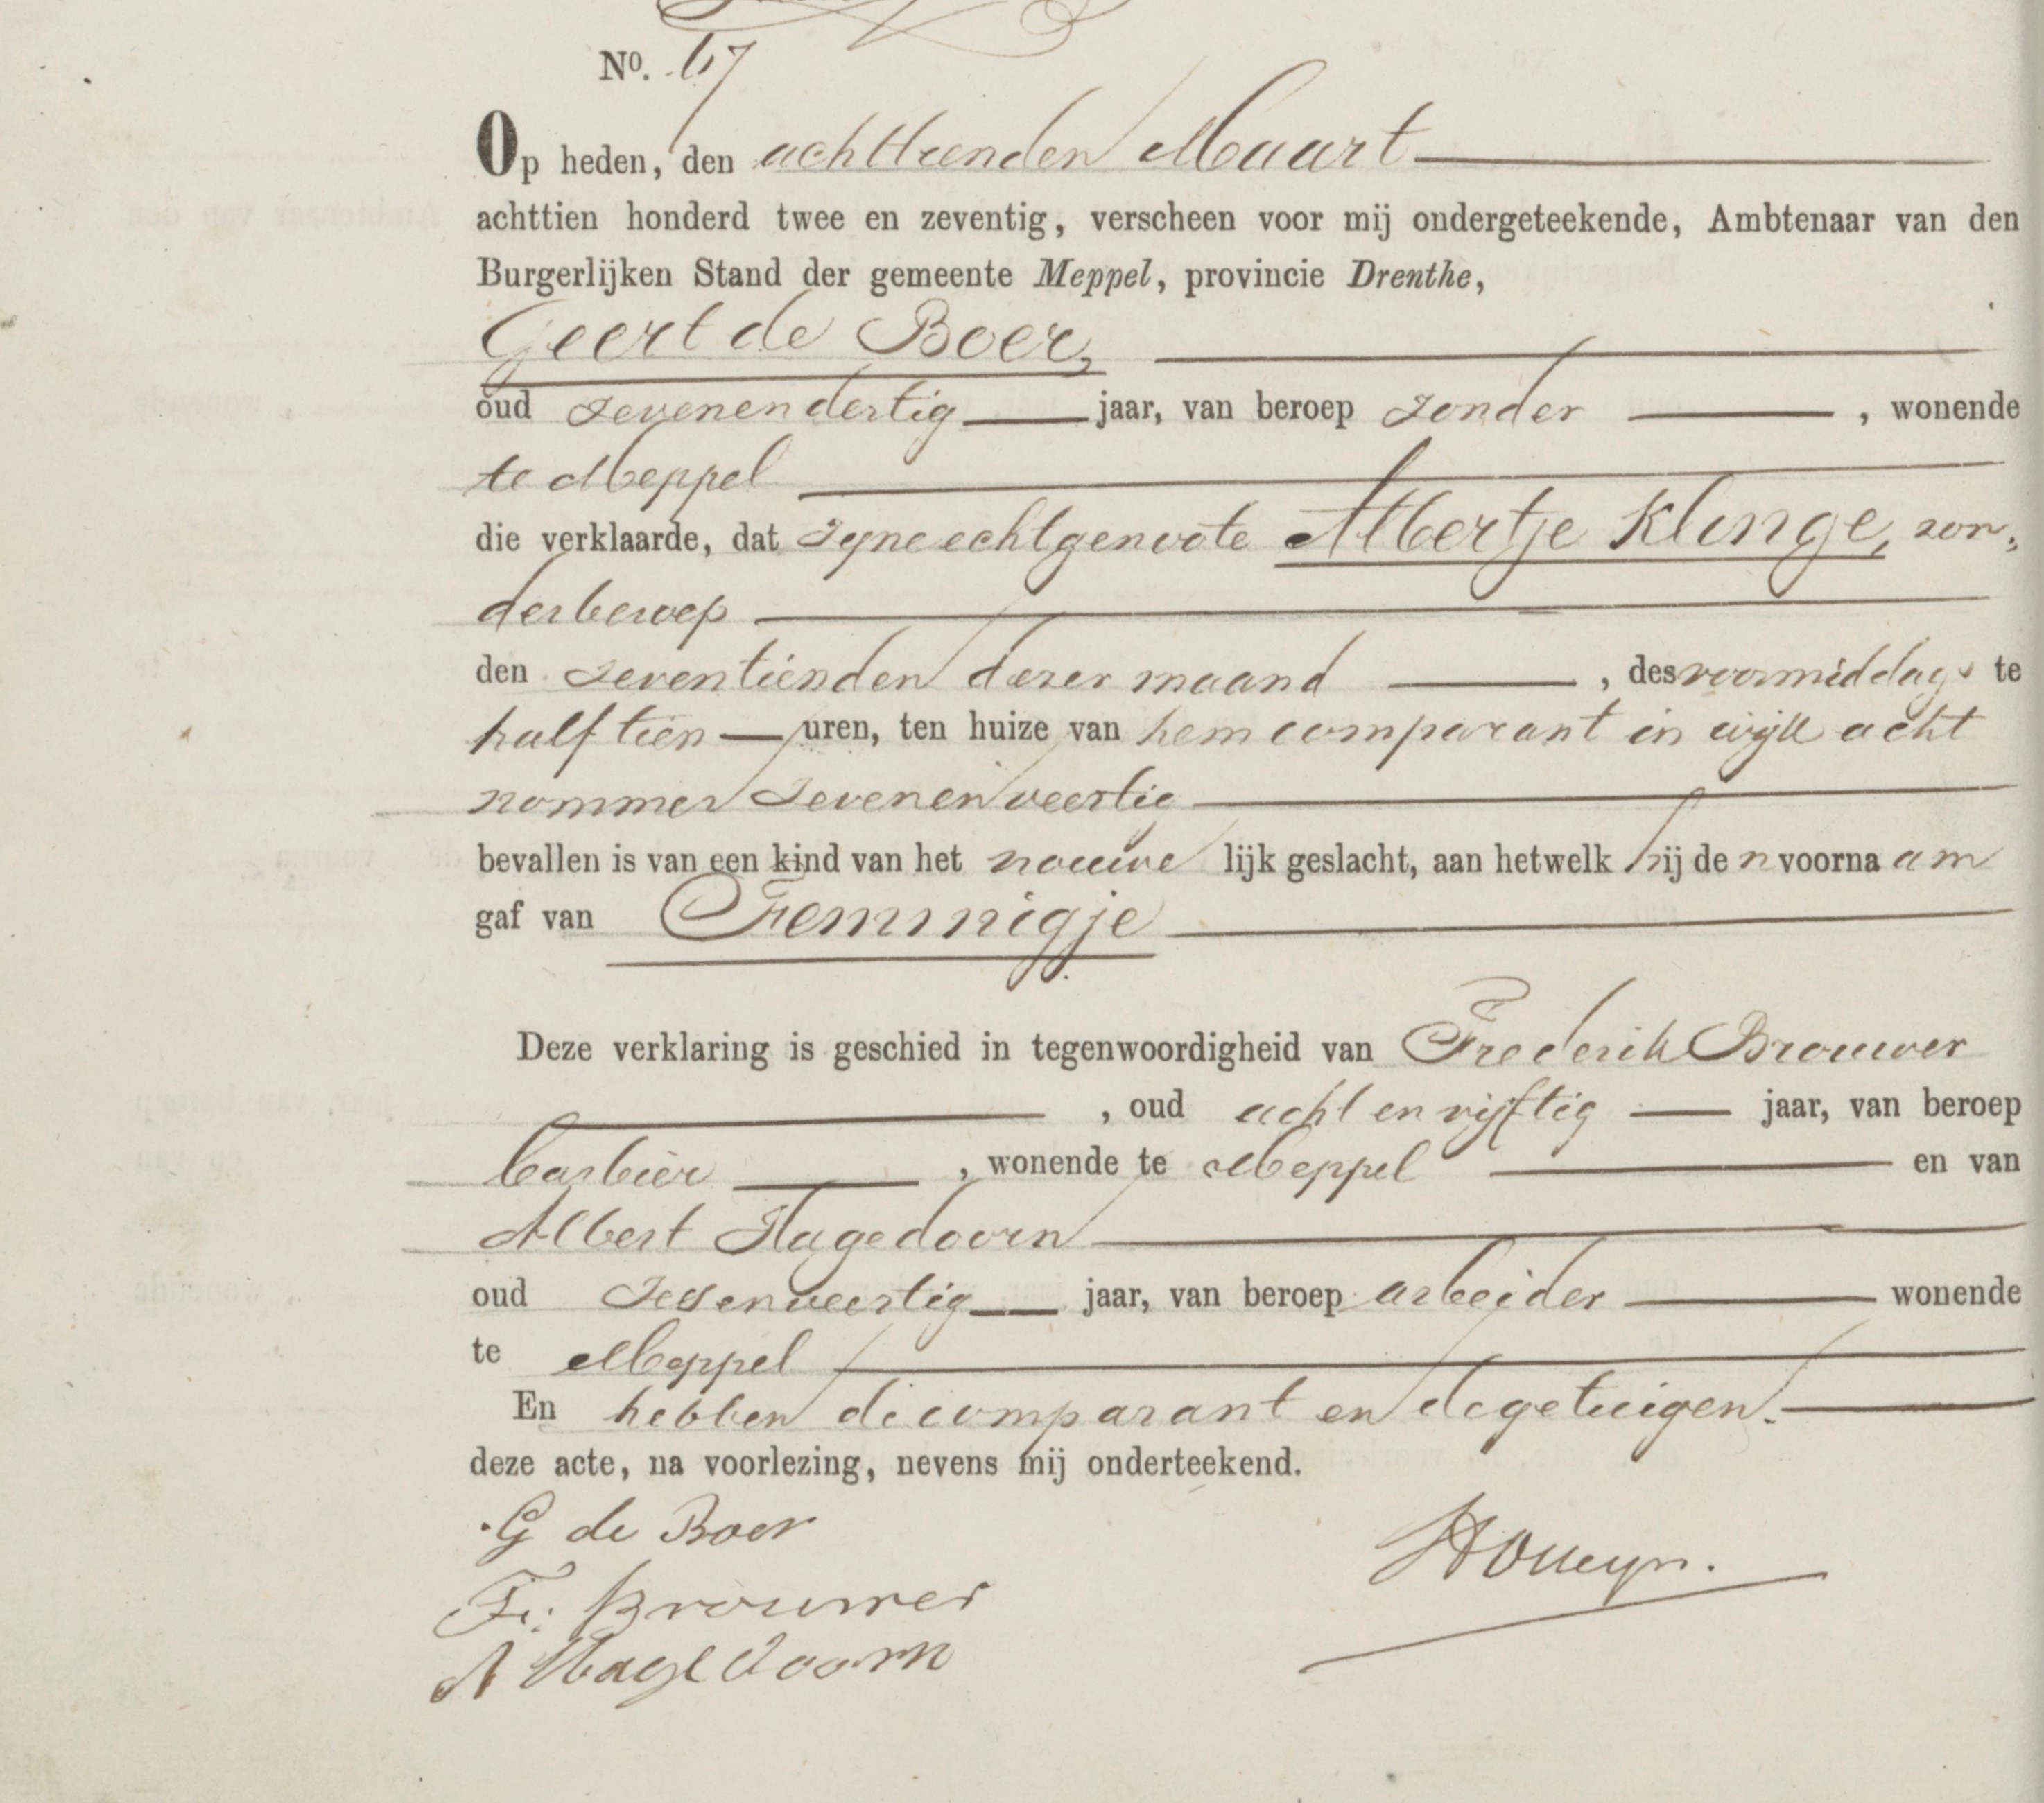 No. 67
Op heden, den achttienden Maart
achttien honderd twee en zeventig, verscheen voor mij ondergeteekende, Ambtenaar van den
Burgerlijken Stand der gemeente Meppel, provincie Drenthe,
Geert de Boer,
oud zevenendertig jaar, van beroep zonder , wonende
te Meppel
die verklaarde, dat zyne echtgenoote Albertje Klinge, zon,
der beroep
den zeventienden dezer maand , des voormiddags te
half tien uren, ten huize van hem comparant in wijk acht
nommer zevenenveertig
bevallen is van een kind van het vrouwe lijk geslacht, aan hetwelk hij de n voorna am
gaf van Femmigje
Deze verklaring is geschied in tegenwoordigheid van Frederik Brouwer
, oud acht en vijftig jaar, van beroep
barbier , wonende te Meppel en van
Albert Hagedoorn
oud zesenveertig jaar, van beroep arbeider wonende
te Meppel
En hebben de comparant en de getuigen
deze acte, na voorlezing, nevens mij onderteekend.
G de Boer
Fr: Brouwer
A Hagedoorn